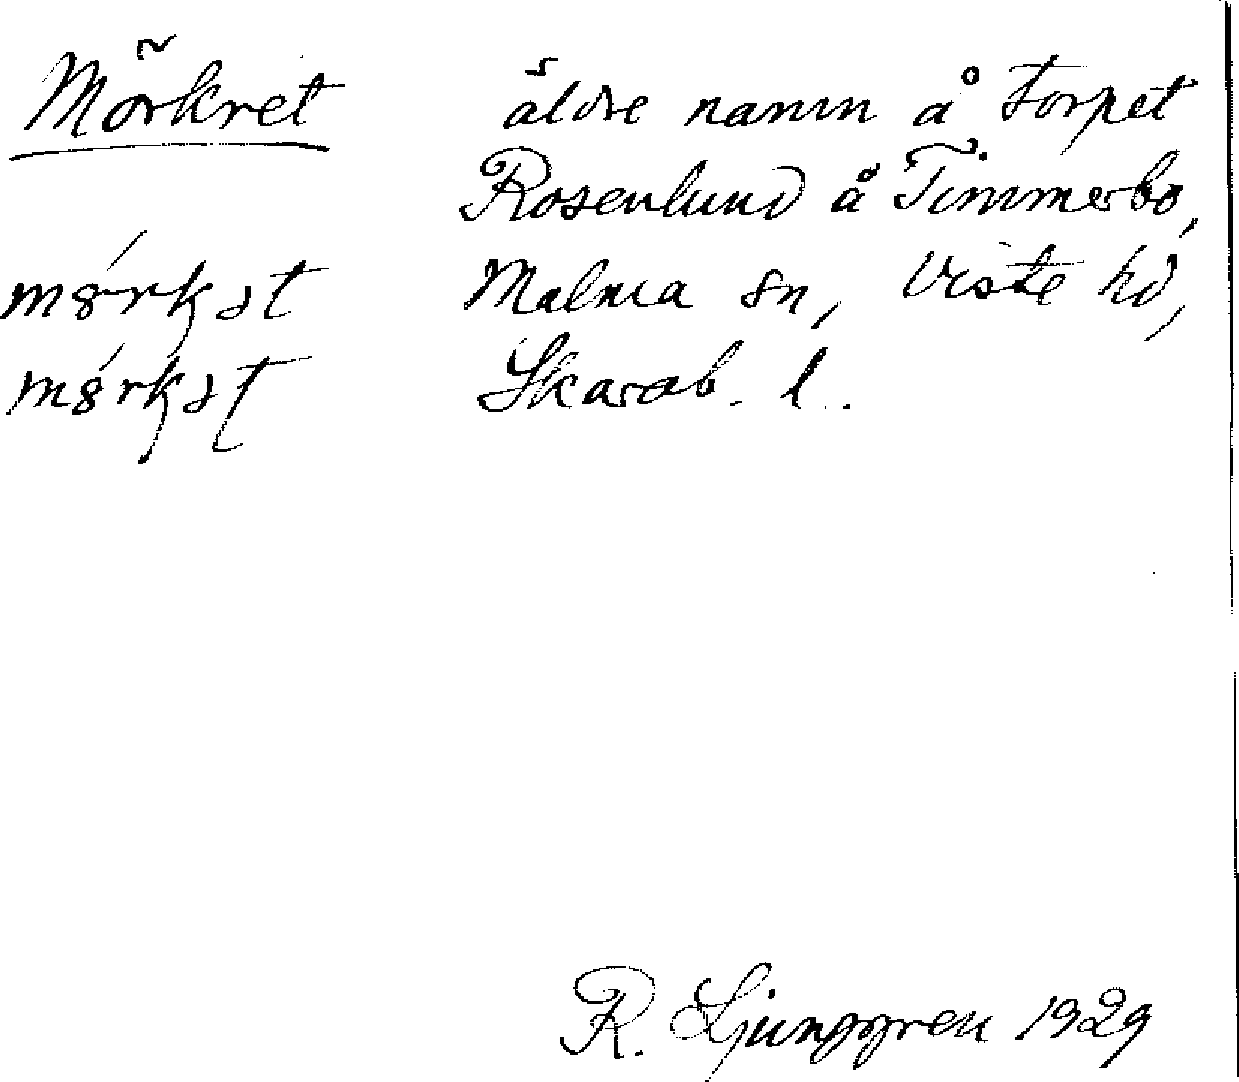 Mörkret äldre namn å torpet
Rosenlund å Timmerbo,
Malma sn, Viste hd,
Skarab. l.
R. Ljunggren 1929